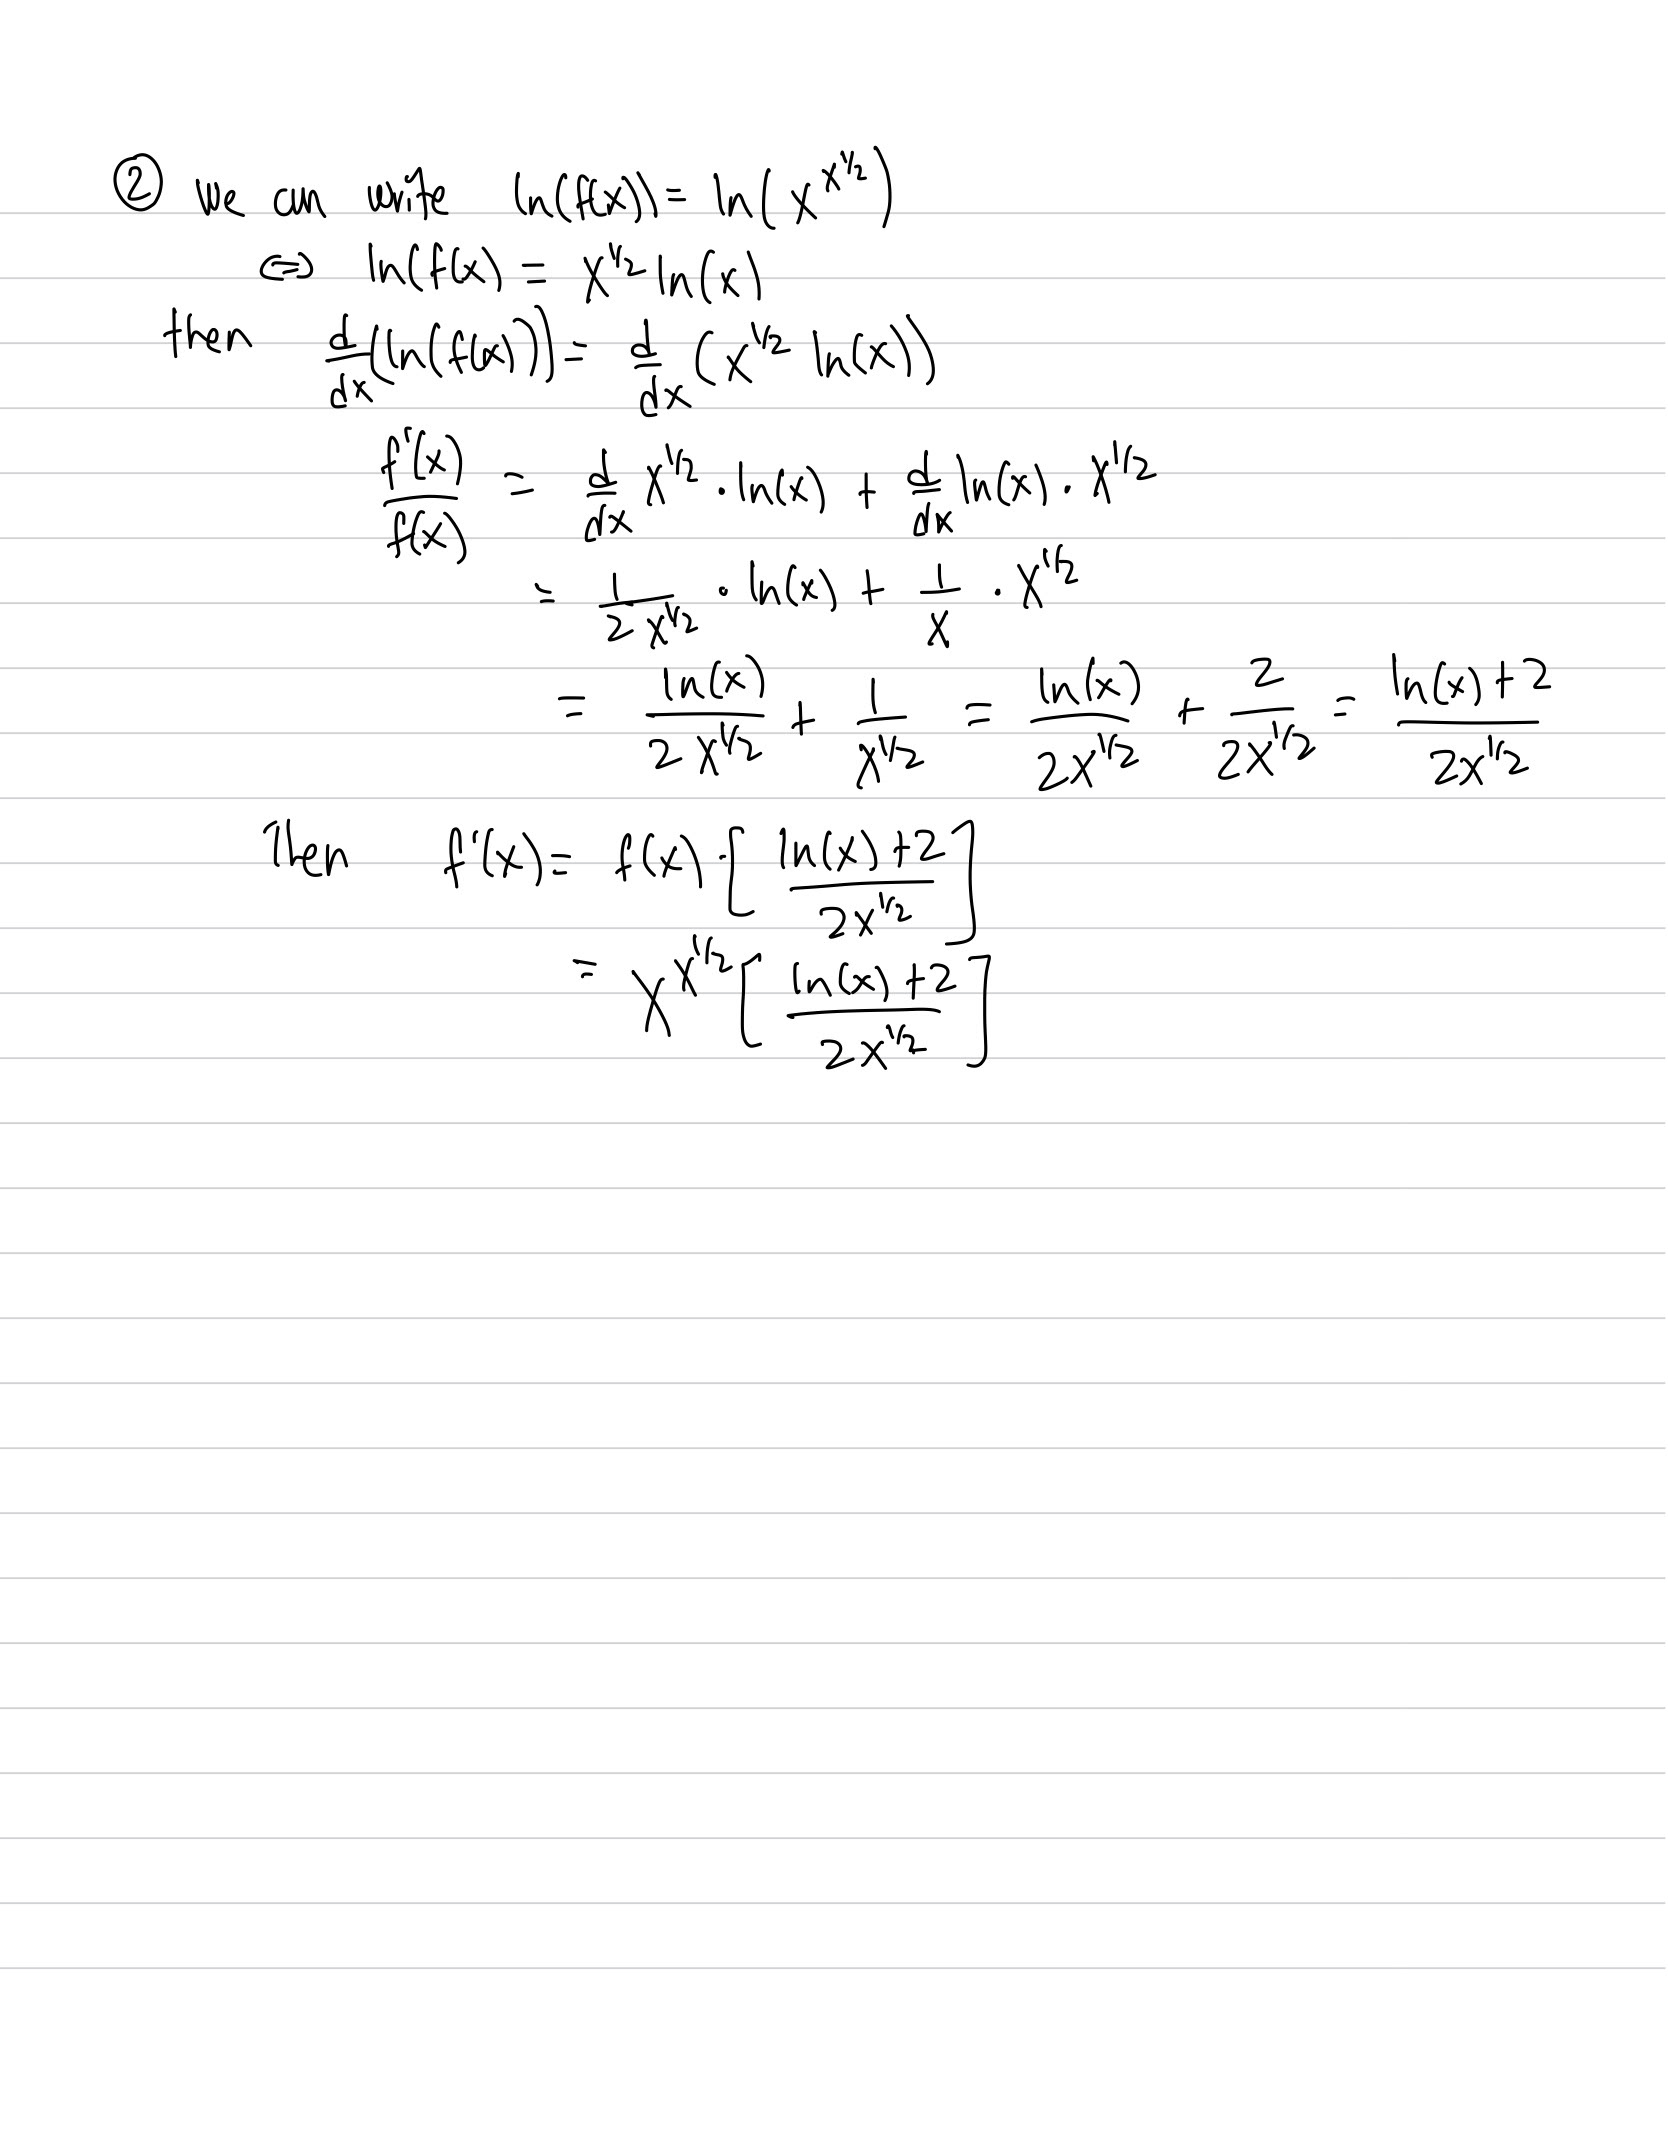 ② we can write ln(f(x)) = ln(x^{x^{1/2}})
⇔ ln(f(x) = x^{1/2} ln(x)
then d/dx (ln(f(x))) = d/dx (x^{1/2} ln(x))
f'(x)/f(x) = d/dx x^{1/2} · ln(x) + d/dx ln(x) · x^{1/2}
= 1/(2x^{1/2}) · ln(x) + 1/x · x^{1/2}
= ln(x)/(2x^{1/2}) + 1/x^{1/2} = ln(x)/(2x^{1/2}) + 2/(2x^{1/2}) = (ln(x)+2)/(2x^{1/2})
Then f'(x) = f(x) · [(ln(x)+2)/(2x^{1/2})]
= x^{x^{1/2}} [(ln(x)+2)/(2x^{1/2})]